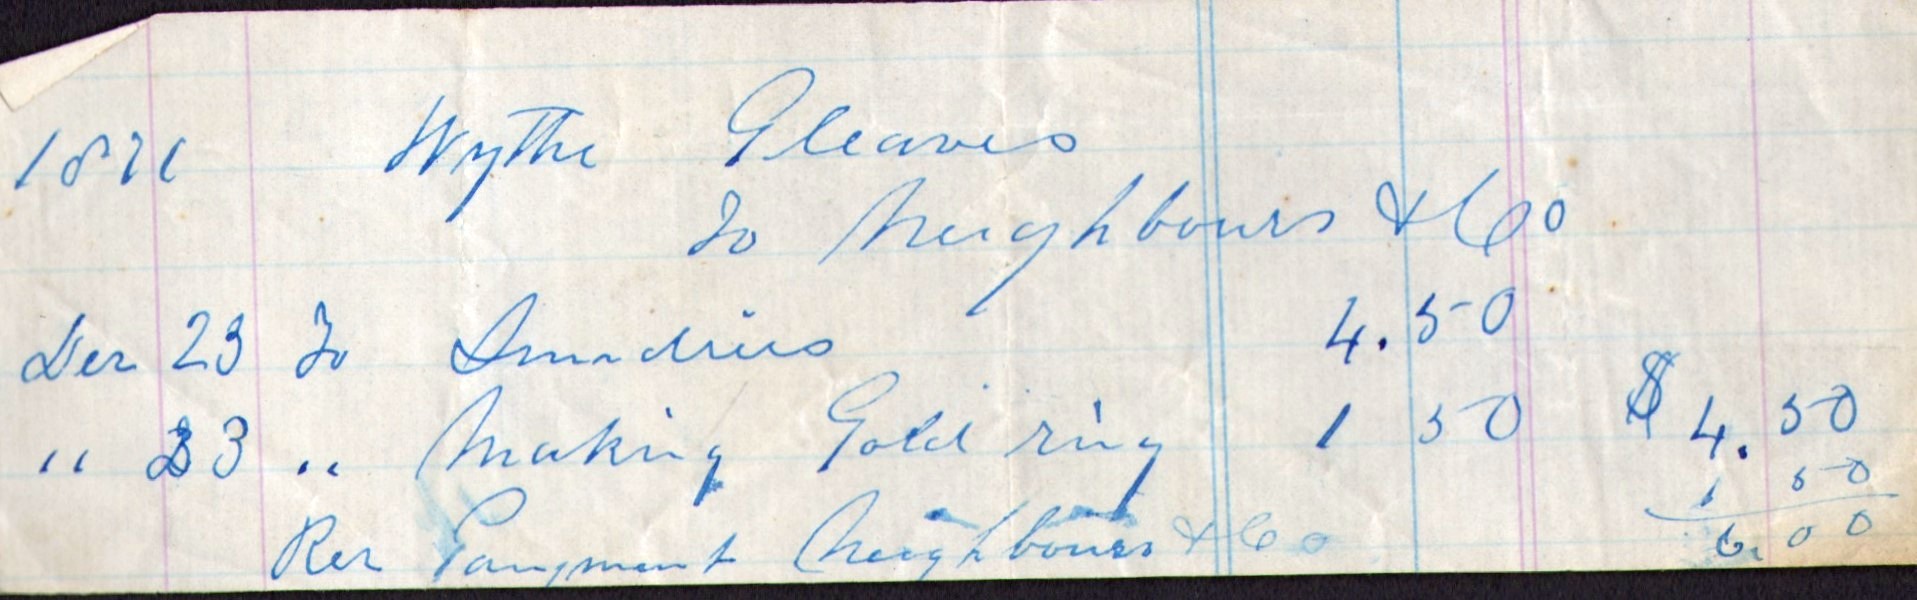 1871 Wythe Gleaves
To Neighbours & Co
Dec 23 To Sundries 4.50
" 23 " Making Gold ring 1 50 $ 4.50
1 50
Rec Payment Neighbours & Co 6.00